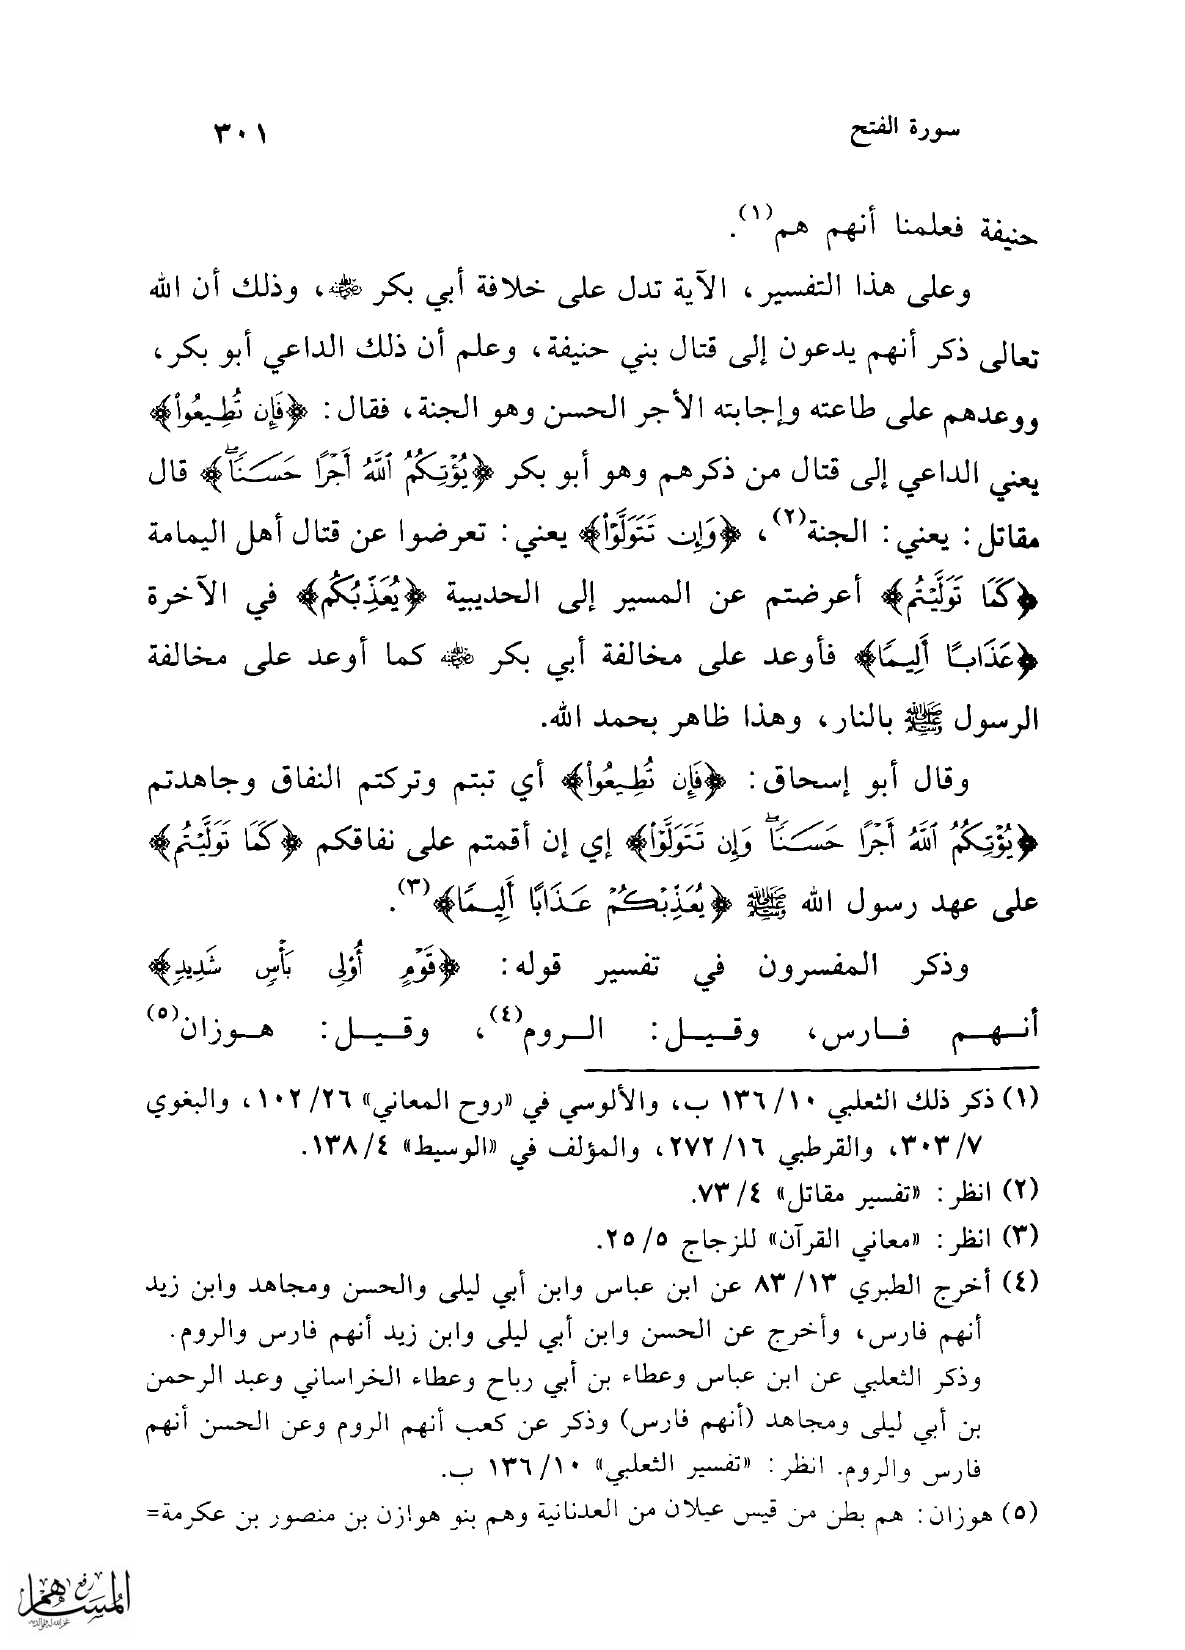 سورة الفتح ٣٠١
حنيفة فعلمنا أنهم هم(١).
وعلى هذا التفسير، الآية تدل على خلافة أبي بكر رضي الله عنه، وذلك أن الله
تعالى ذكر أنهم يدعون إلى قتال بني حنيفة، وعلم أن ذلك الداعي أبو بكر،
ووعدهم على طاعته وإجابته الأجر الحسن وهو الجنة، فقال: ﴿فَإِن تُطِيعُوا۟﴾
يعني الداعي إلى قتال من ذكرهم وهو أبو بكر ﴿يُؤْتِكُمُ ٱللَّهُ أَجْرًا حَسَنًاۖ﴾ قال
مقاتل: يعني: الجنة(٢)، ﴿وَإِن تَتَوَلَّوْا۟﴾ يعني: تعرضوا عن قتال أهل اليمامة
﴿كَمَا تَوَلَّيْتُم﴾ أعرضتم عن المسير إلى الحديبية ﴿يُعَذِّبْكُم﴾ في الآخرة
﴿عَذَابًا أَلِيمًا﴾ فأوعد على مخالفة أبي بكر رضي الله عنه كما أوعد على مخالفة
الرسول ﷺ بالنار، وهذا ظاهر بحمد الله.
وقال أبو إسحاق: ﴿فَإِن تُطِيعُوا۟﴾ أي تبتم وتركتم النفاق وجاهدتم
﴿يُؤْتِكُمُ ٱللَّهُ أَجْرًا حَسَنًاۖ وَإِن تَتَوَلَّوْا۟﴾ إي إن أقمتم على نفاقكم ﴿كَمَا تَوَلَّيْتُم﴾
على عهد رسول الله ﷺ ﴿يُعَذِّبْكُمْ عَذَابًا أَلِيمًا﴾(٣).
وذكر المفسرون في تفسير قوله: ﴿قَوْمٍ أُو۟لِى بَأْسٍ شَدِيدٍ﴾
أنهم فارس، وقيل: الروم(٤)، وقيل: هوزان(٥)
(١) ذكر ذلك الثعلبي ١٠/ ١٣٦ ب، والألوسي في «روح المعاني» ٢٦/ ١٠٢، والبغوي
٧/ ٣٠٣، والقرطبي ١٦/ ٢٧٢، والمؤلف في «الوسيط» ٤/ ١٣٨.
(٢) انظر: «تفسير مقاتل» ٤/ ٧٣.
(٣) انظر: «معاني القرآن» للزجاج ٥/ ٢٥.
(٤) أخرج الطبري ١٣/ ٨٣ عن ابن عباس وابن أبي ليلى والحسن ومجاهد وابن زيد
أنهم فارس، وأخرج عن الحسن وابن أبي ليلى وابن زيد أنهم فارس والروم.
وذكر الثعلبي عن ابن عباس وعطاء بن أبي رباح وعطاء الخراساني وعبد الرحمن
بن أبي ليلى ومجاهد (أنهم فارس) وذكر عن كعب أنهم الروم وعن الحسن أنهم
فارس والروم. انظر: «تفسير الثعلبي» ١٠/ ١٣٦ ب.
(٥) هوزان: هم بطن من قيس عيلان من العدنانية وهم بنو هوازن بن منصور بن عكرمة=